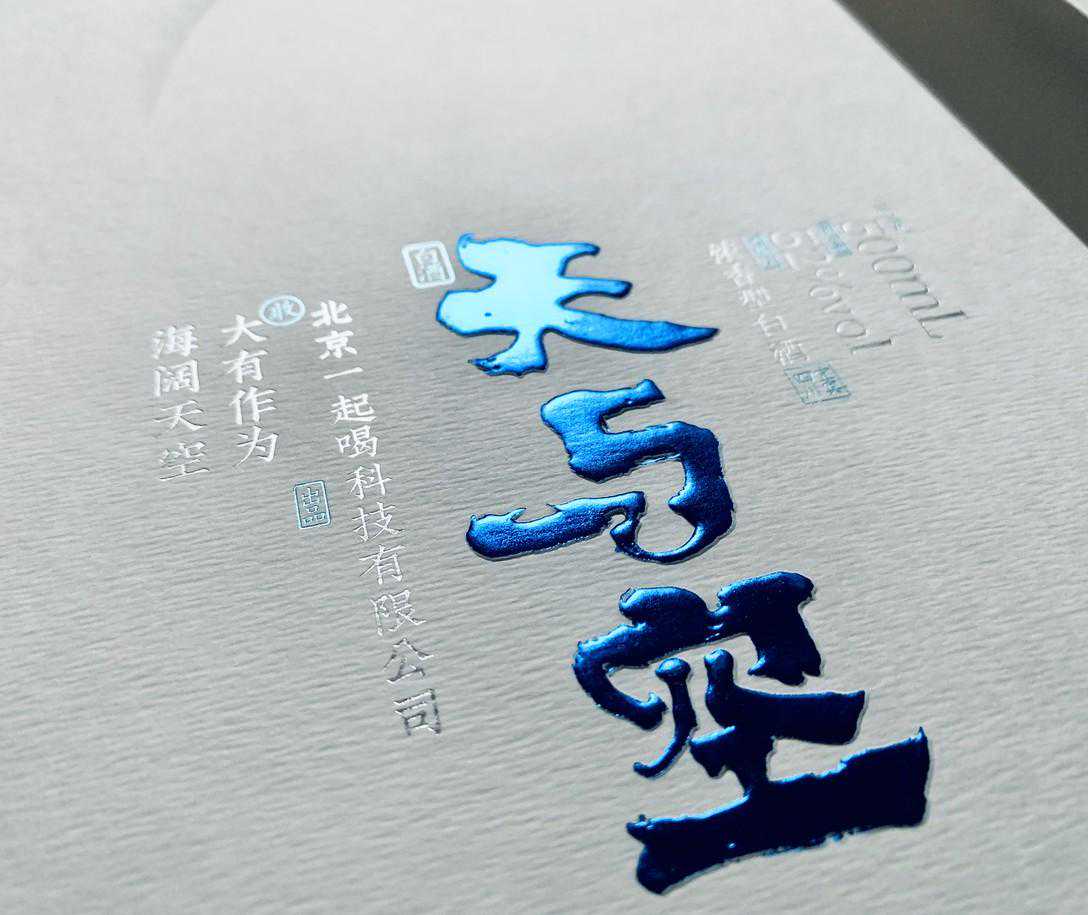 500mL
浓香型白酒
天与空
白酒
北京一起喝科技有限公司
出品
大有作为
海阔天空